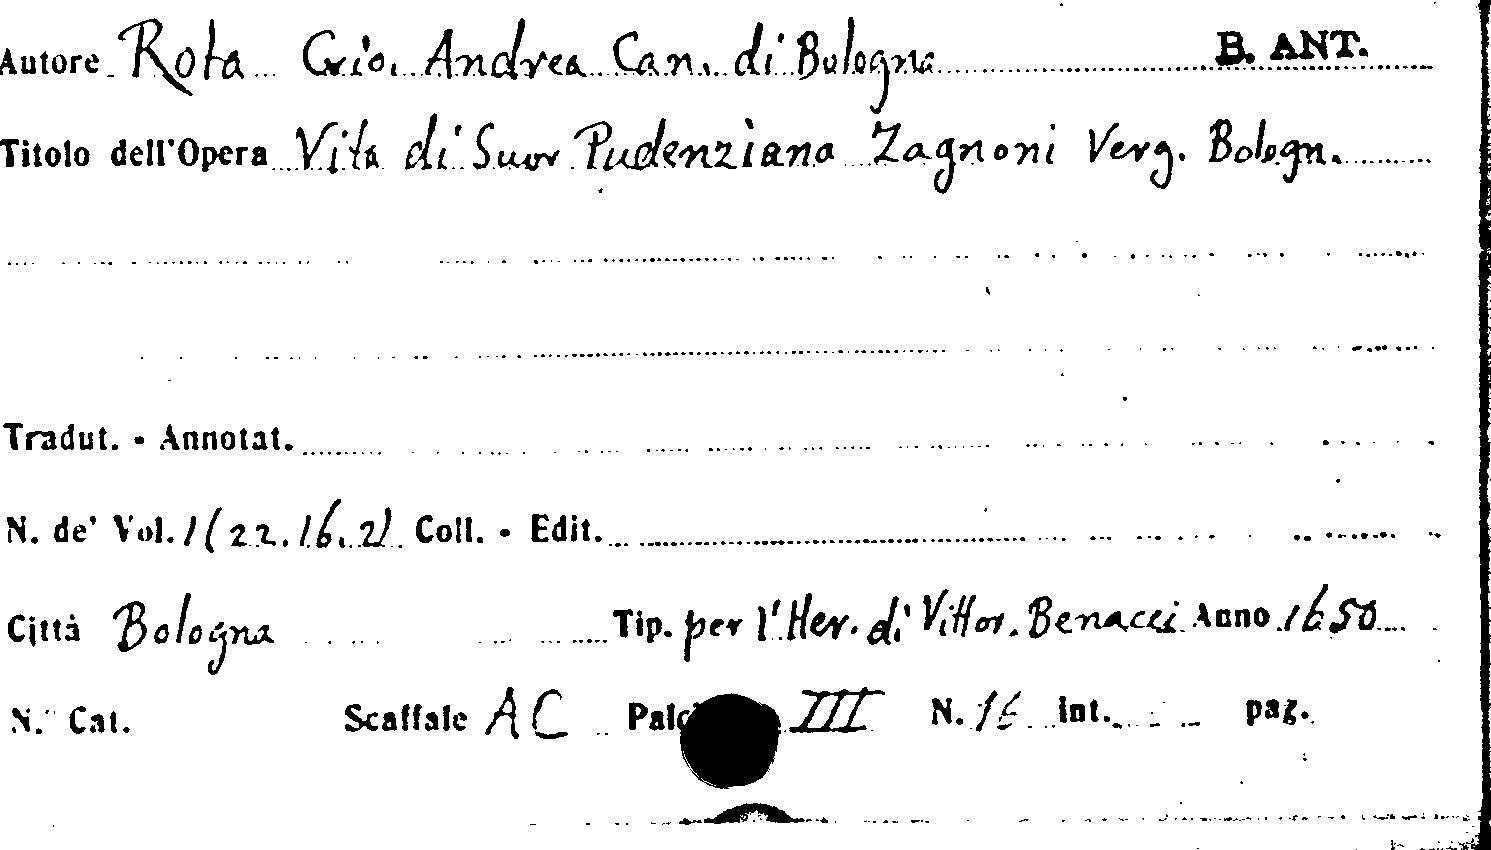 Autore Rota Gio. Andrea Can. di Bologna B. ANT.
Titolo dell'Opera Vita di Suor Pudenziana Zagnoni Verg. Bologn.
Tradut. - Annotat.
N. de' Vol. 1 (22.16.2) Coll. - Edit.
Città Bologna Tip. per l'Her. di Vittor. Benacci Anno 1650
N. Cat. Scaffale AC III N. 16 int. pag.